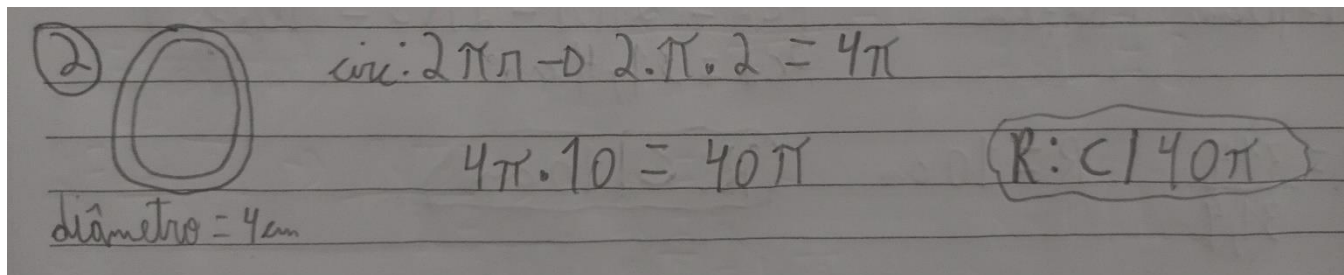 2 circ: 2πr → 2.π.2 = 4π
4π.10 = 40π R: C| 40π
diâmetro = 4cm